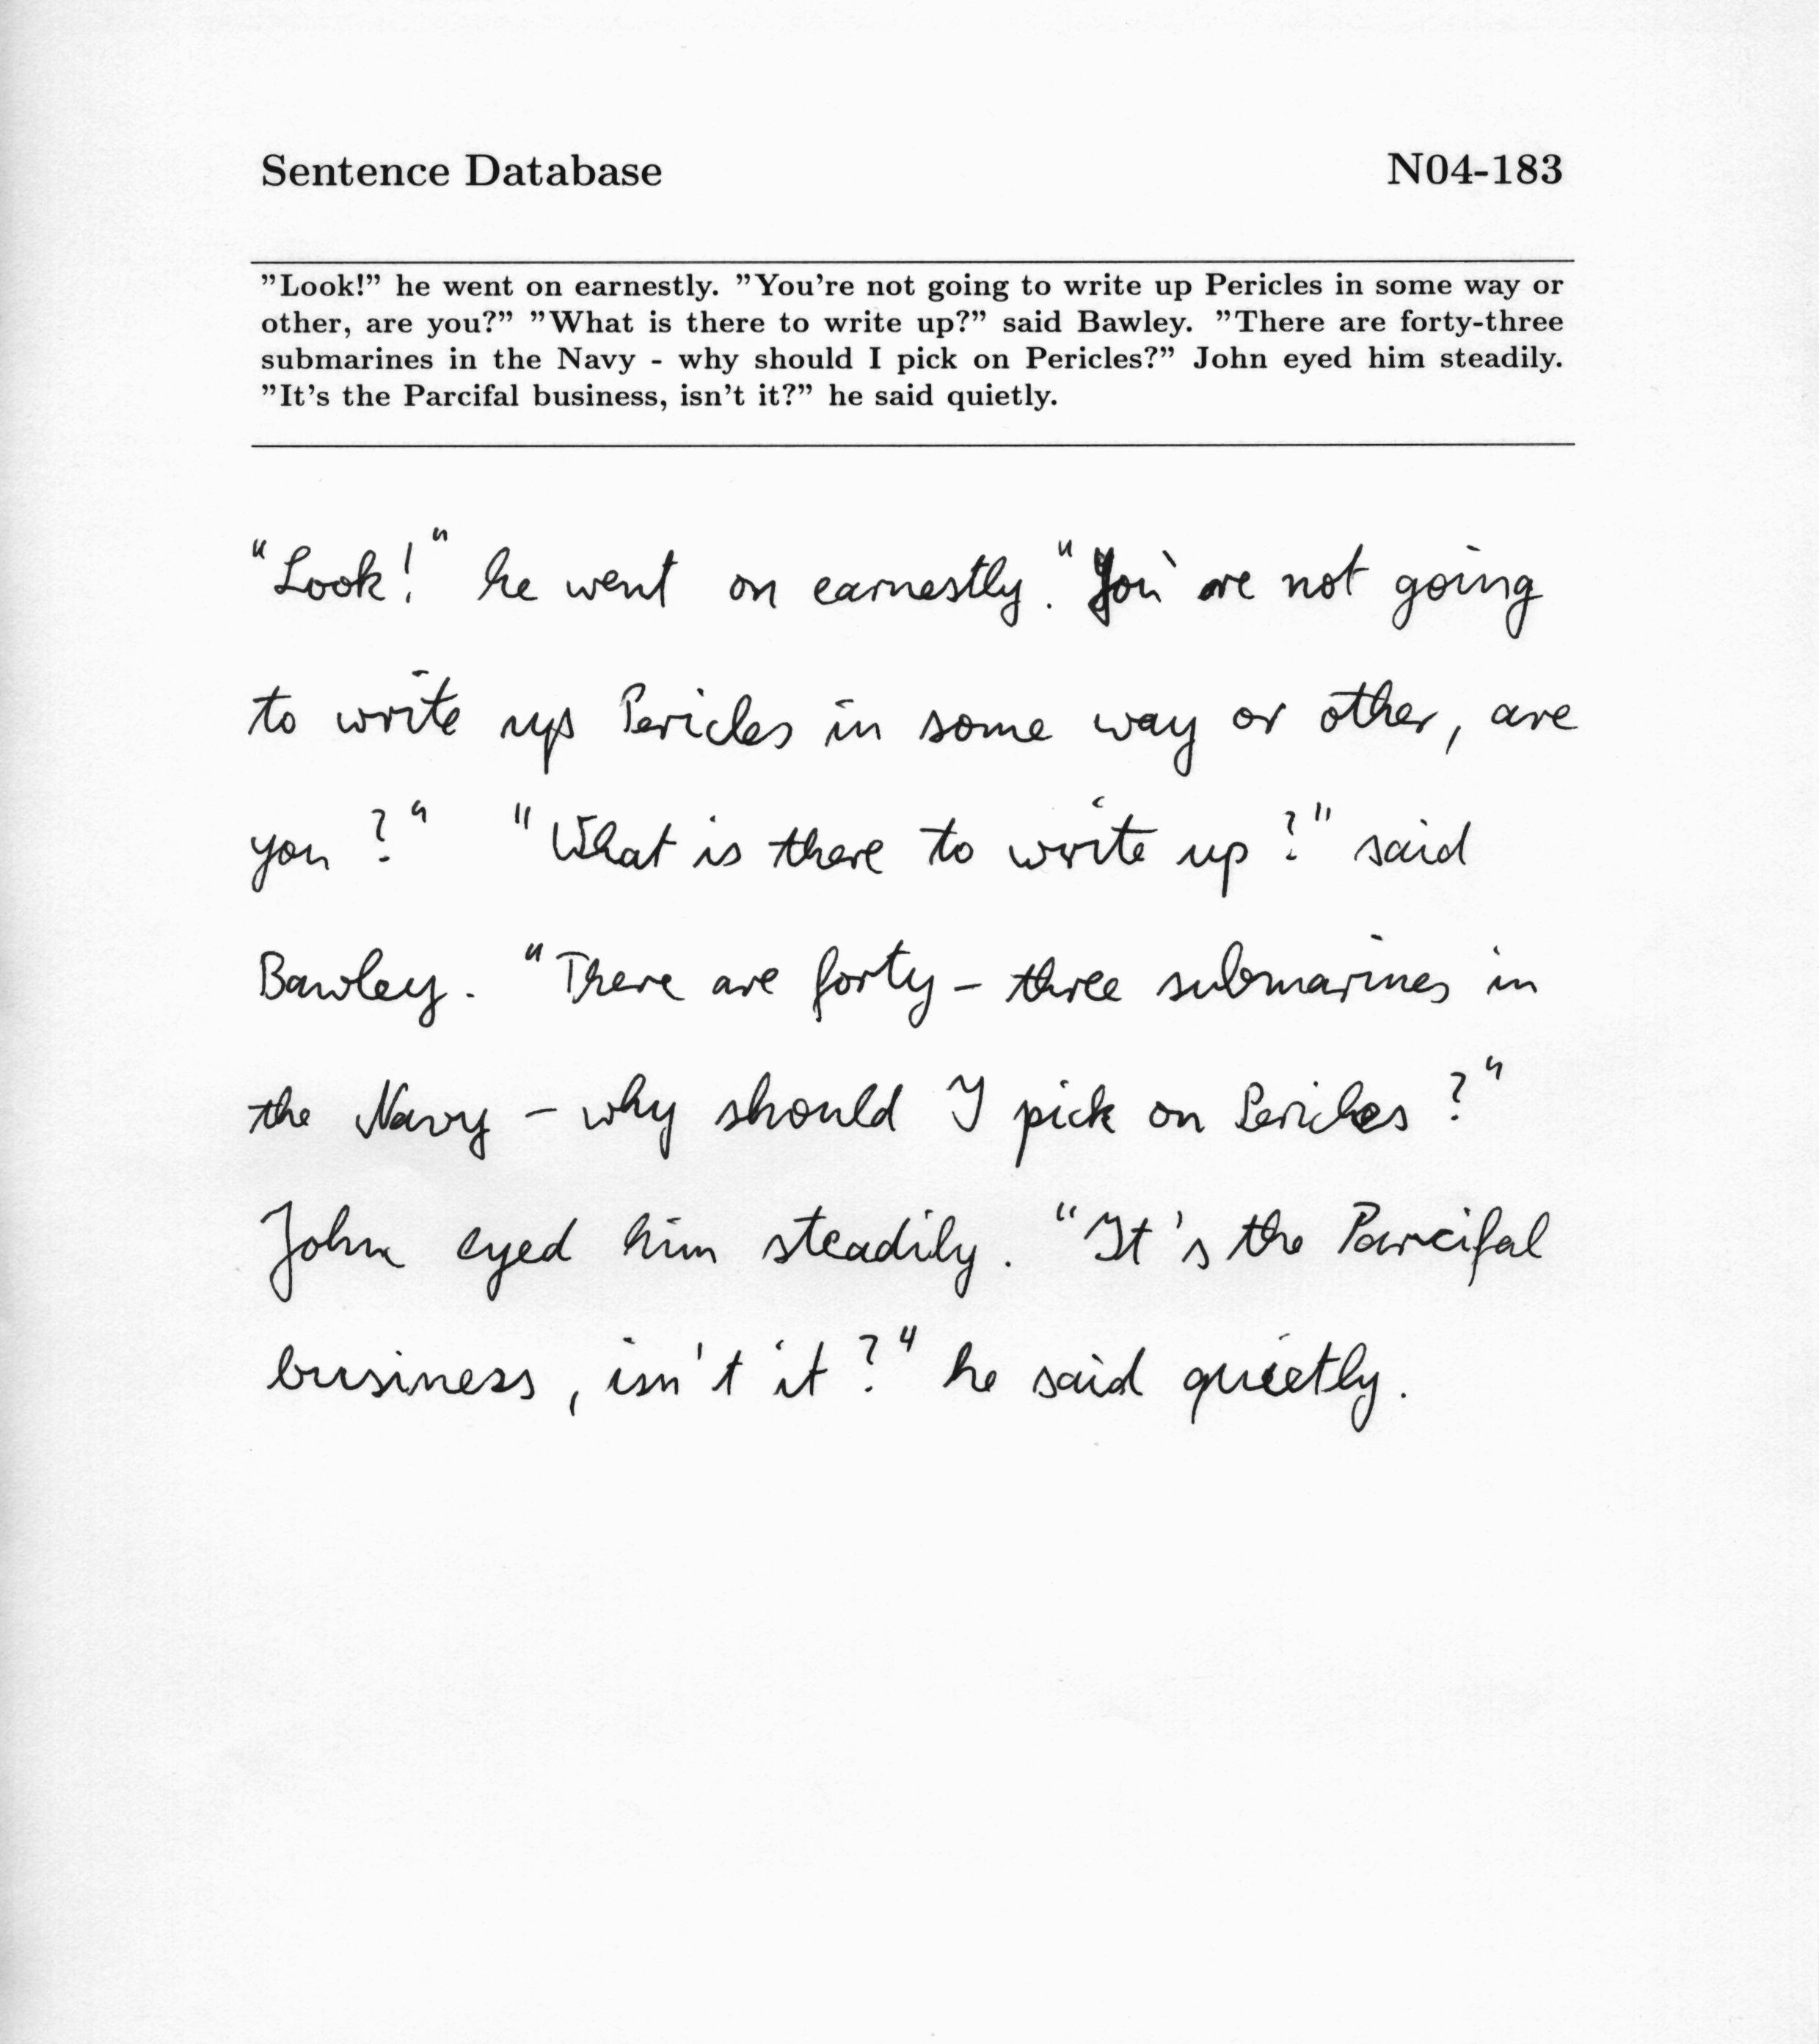 Sentence Database N04-183
”Look!” he went on earnestly. ”You're not going to write up Pericles in some way or
other, are you?” ”What is there to write up?” said Bawley. ”There are forty-three
submarines in the Navy - why should I pick on Pericles?” John eyed him steadily.
”It's the Parcifal business, isn't it?” he said quietly.
"Look!" he went on earnestly. "You're not going
to write up Pericles in some way or other, are
you?" "What is there to write up?" said
Bawley. "There are forty-three submarines in
the Navy - why should I pick on Pericles?"
John eyed him steadily. "It's the Parcifal
business, isn't it?" he said quietly.